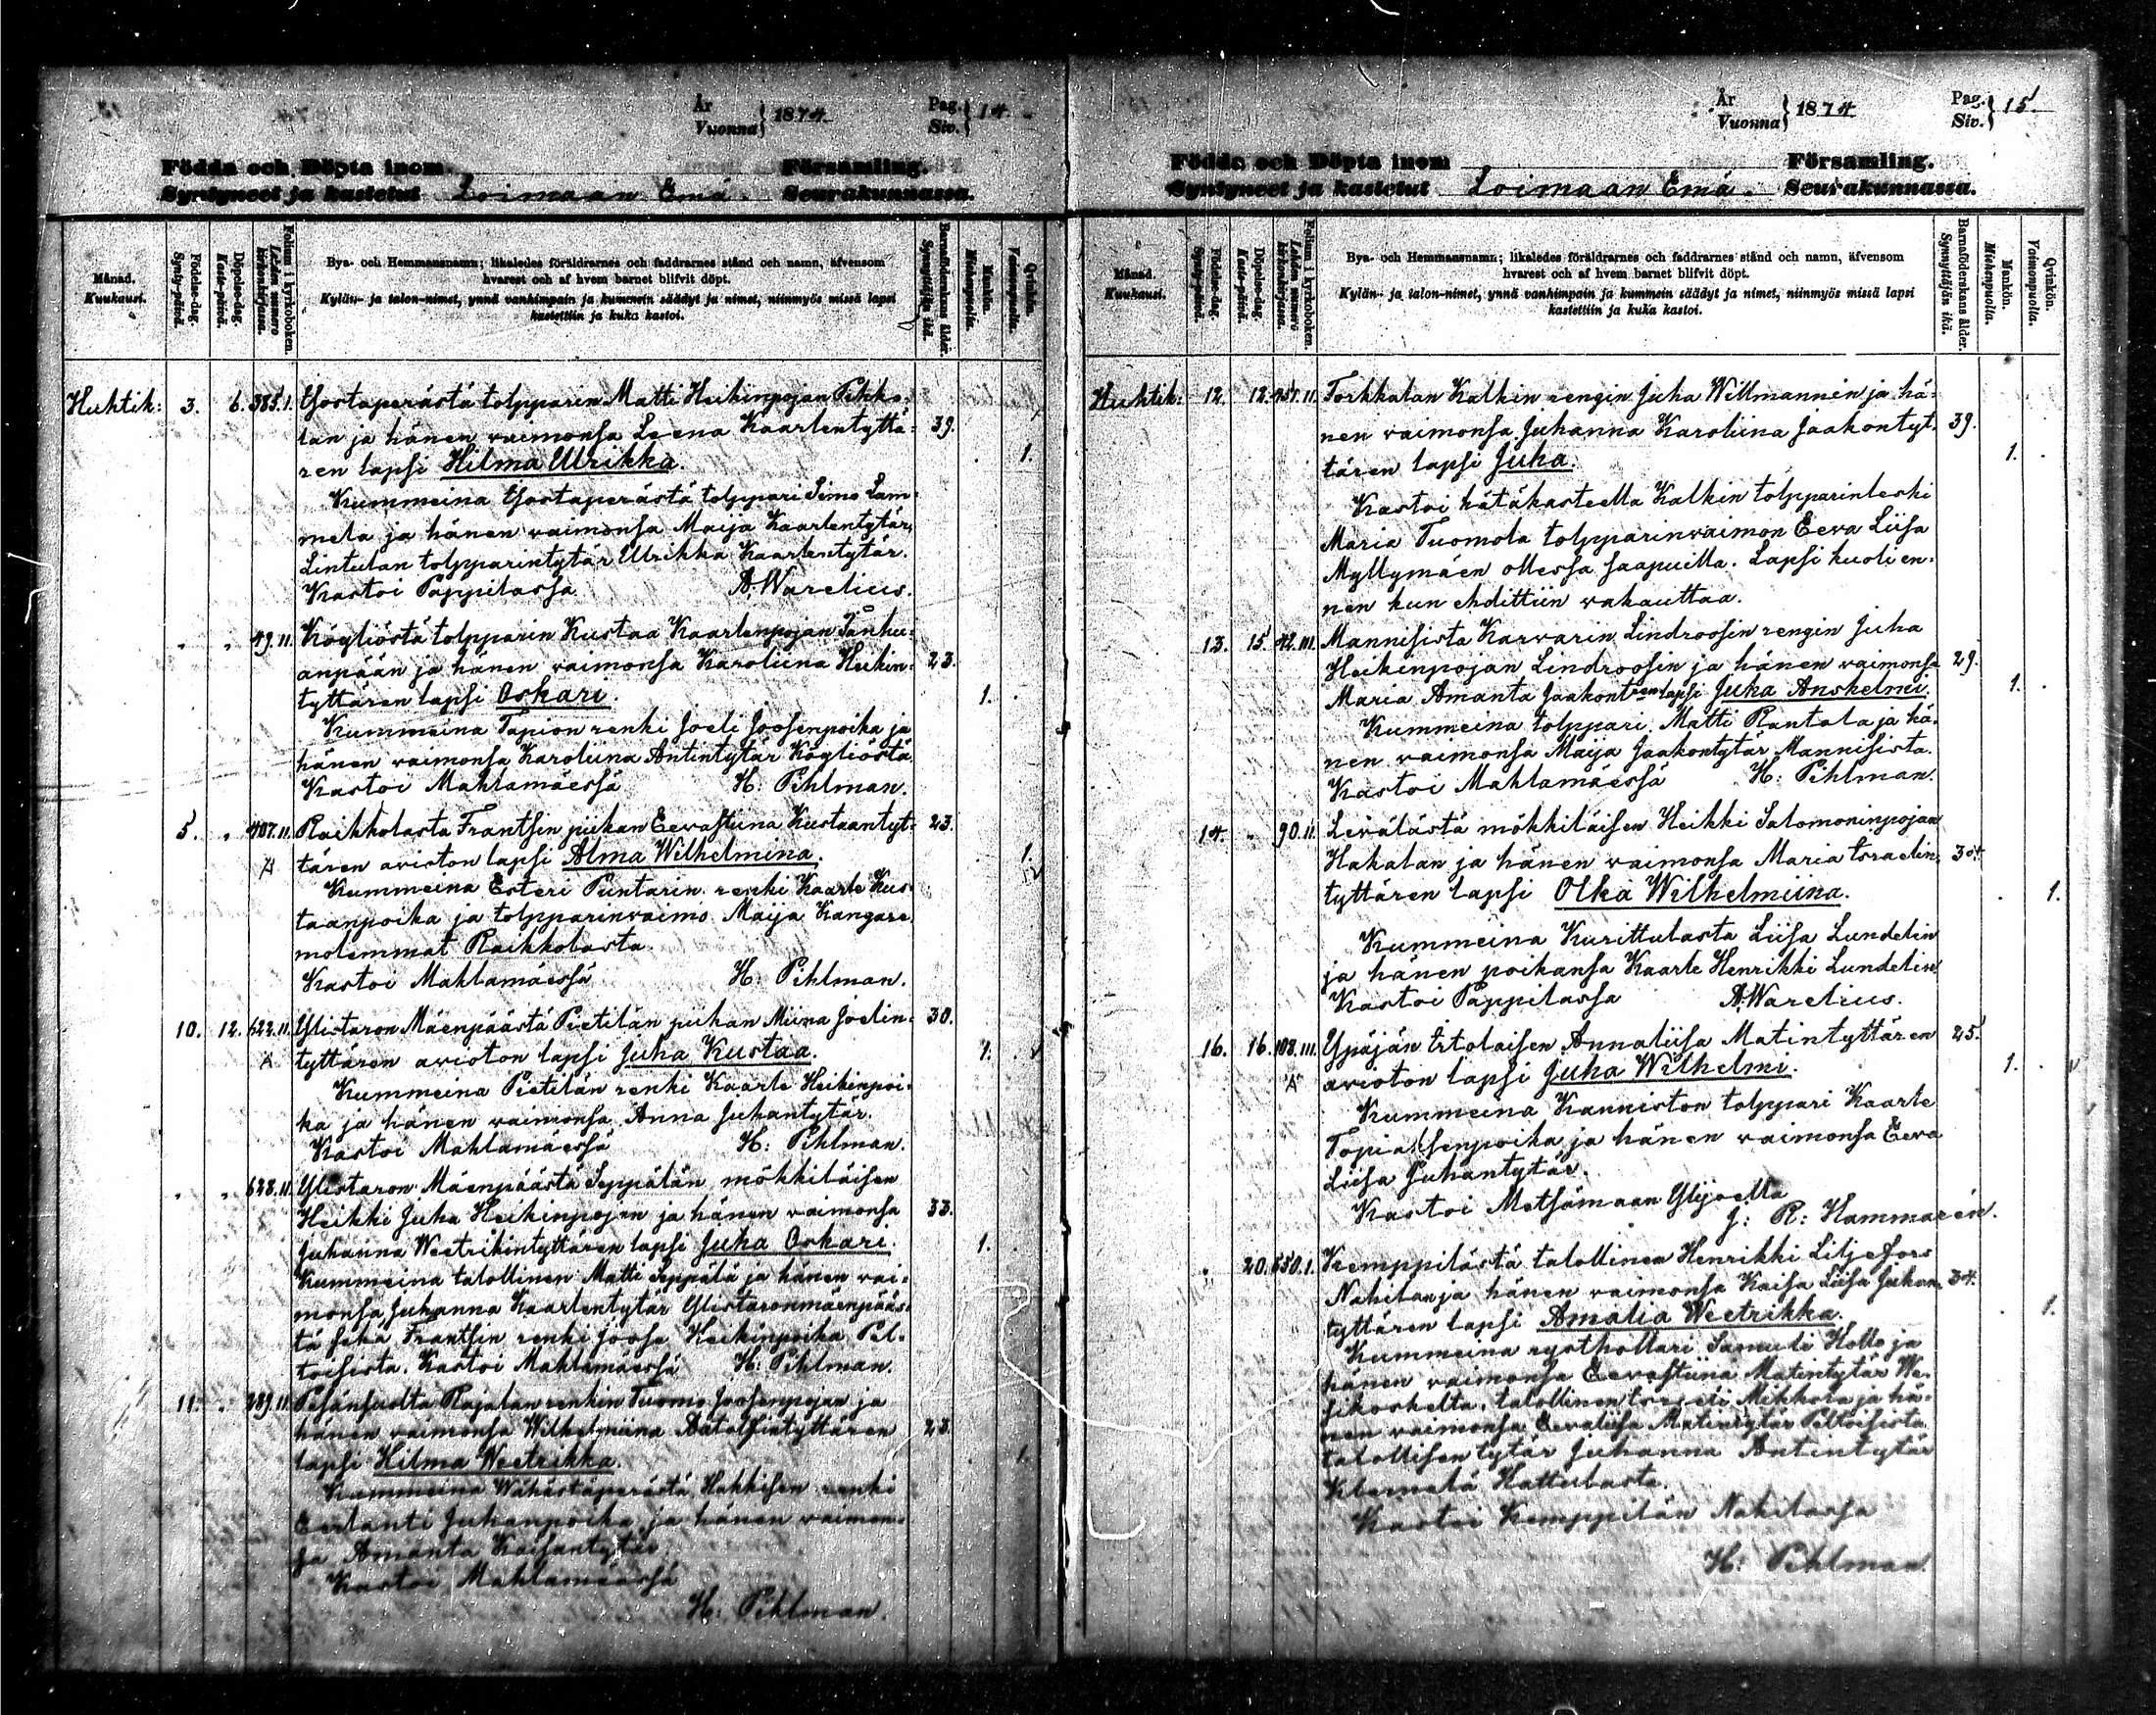 År
Vuonna } 1874.
Pag.
Siv. } 14.
Födda och Döpta inom Församling.
Syntyneet ja kastetut Loimaan Emä. Seurakunnassa.
Månad.
Kuukausi.
Födelse-dag.
Synty-päivä.
Döpelse-dag.
Kaste-päivä.
Folium i kyrkoboken.
Lehden numero kirkonkirjassa.
Bya- och Hemmansnamn; likaledes föräldrarnes och faddrarnes stånd och namn, äfvensom
hvarest och af hvem barnet blifvit döpt.
Kylän- ja talon-nimet, ynnä vanhimpain ja kummein säädyt ja nimet, niinmyös missä lapsi
kastettiin ja kuka kastoi.
Barnaföderskans ålder.
Synnyttäjän ikä.
Mankön.
Miehenpuolia.
Qvinkön.
Vaimonpuolia.
Huhtik: 3. 6. 385.I. Ojostaperästä tolpparin Matti Heikinpojan Pihko-
lan ja hänen vaimonsa Leena Kaarlentyttä- 39.
ren lapsi Hilma Ulrikka. 1.
Kummeina Ojostaperästä tolppari Simo Lam-
mela ja hänen vaimonsa Maija Kaarlentytär,
Lintulan tolpparintytär Ulrikka Kaarlentytär.
Kastoi Pappilassa A. Warelius.
" " 49.II. Kögliöstä tolpparin Kustaa Kaarlenpojan Tanhu-
anpään ja hänen vaimonsa Karoliina Heikin- 23.
tyttären lapsi Oskari. 1.
Kummeina Tapion renki Joeli Joosenpoika ja
hänen vaimonsa Karoliina Antintytär Kögliöstä.
Kastoi Mahlamäessä H: Pihlman.
5. " 407.II. Raikkolasta Frantsin piikan Eevastiina Kustaantyt- 23.
A tären avioton lapsi Alma Wilhelmina. 1.
Kummeina Esteri Puntarin renki Kaarle Kus-
taanpoika ja tolpparinvaimo Maija Kangare
molemmat Raikkolasta.
Kastoi Mahlamäessä H: Pihlman.
10. 12. 622.II. Ylistaron Mäenpäästä Pietilän piikan Miina Joelin- 30.
A tyttären avioton lapsi Juha Kustaa. 1.
Kummeina Pietilän renki Kaarle Heikinpoi-
ka ja hänen vaimonsa Anna Juhantytär.
Kastoi Mahlamäessä H: Pihlman.
" " 628.II. Ylistaron Mäenpäästä Seppälän mökkiläisen
Heikki Juha Heikinpojan ja hänen vaimonsa 33.
Juhanna Weetrikintyttären lapsi Juha Oskari. 1.
Kummeina talollinen Matti Seppälä ja hänen vai-
monsa Juhanna Kaarlentytär Ylistaronmäenpääs-
tä sekä Frantsin renki Joosa Heikinpoika Pel-
toisista. Kastoi Mahlamäessä H: Pihlman.
11. " 289.II. Pesänsuolta Rajalan renkin Tuomo Joosenpojan ja
hänen vaimonsa Wilhelmiina Aatolfintyttären 23.
lapsi Hilma Weetrikka. 1.
Kummeina Wähästäperästä Hakkisen renki
Eerlanti Juhanpoika ja hänen vaimon-
sa Amanta Kaisantytär.
Kastoi Mahlamäessä
H: Pihlman.
År
Vuonna } 1874
Pag.
Siv. } 15
Födda och Döpta inom Församling.
Syntyneet ja kastetut Loimaan Emä. Seurakunnassa.
Månad.
Kuukausi.
Födelse-dag.
Synty-päivä.
Döpelse-dag.
Kaste-päivä.
Folium i kyrkoboken.
Lehden numero kirkonkirjassa.
Bya- och Hemmansnamn; likaledes föräldrarnes och faddrarnes stånd och namn, äfvensom
hvarest och af hvem barnet blifvit döpt.
Kylän- ja talon-nimet, ynnä vanhimpain ja kummein säädyt ja nimet, niinmyös missä lapsi
kastettiin ja kuka kastoi.
Barnaföderskans ålder.
Synnyttäjän ikä.
Mankön.
Miehenpuolia.
Qvinkön.
Vaimonpuolia.
Huhtik: 12. 12. Torkkalan Kalkin rengin Juha Willmannin ja hä-
nen vaimonsa Juhanna Karoliina Jaakontyt- 39.
tären lapsi Juha. 1.
Kastoi hätäkasteella Kalkin tolpparinleski
Maria Tuomola tolpparinvaimon Eeva Liisa
Myllymäen ollessa saapuilla. Lapsi kuoli en-
nen kun ehdittiin vakauttaa.
13. 15. 42.III. Mannisista Karvarin Lindroosin rengin Juha
Heikinpojan Lindroosin ja hänen vaimonsa 29.
Maria Amanta Jaakontren lapsi Juha Anshelmi. 1.
Kummeina tolppari Matti Rantala ja hä-
nen vaimonsa Maija Jaakontytär Mannisista.
Kastoi Mahlamäessä H: Pihlman.
14. " 90.II. Levälästä mökkiläisen Heikki Salomoninpojan
Hakalan ja hänen vaimonsa Maria Israelin- 30.
tyttären lapsi Olka Wilhelmiina. 1.
Kummeina Kurittulasta Liisa Lundelin
ja hänen poikansa Kaarle Henrikki Lundelin.
Kastoi Pappilassa A. Warelius.
16. 16. 108.III. Ypäjän Itolaisen Annaliisa Matintyttären 25.
A avioton lapsi Juha Wilhelmi. 1.
Kummeina Kanniston tolppari Kaarle
Topiaksenpoika ja hänen vaimonsa Eeva
Liisa Juhantytär.
Kastoi Metsämaan Ylijoella
J: R: Hammarén.
" 20. 550.I. Kemppilästä talollinen Henrikki Liljefors
Nahilan ja hänen vaimonsa Kaisa Liisa Juhan- 34.
tyttären lapsi Amalia Weetrikka. 1.
Kummeina rysthollari Samuli Hollo ja
hänen vaimonsa Eevastiina Matintytär We-
sikoskelta, talollinen Mikkola ja hä-
nen vaimonsa Eevaliisa Matintytär Peltoisista
talollisen tytär Juhanna Antintytär
Hattulasta.
Kastoi Kemppilän Nahilassa
H: Pihlman.